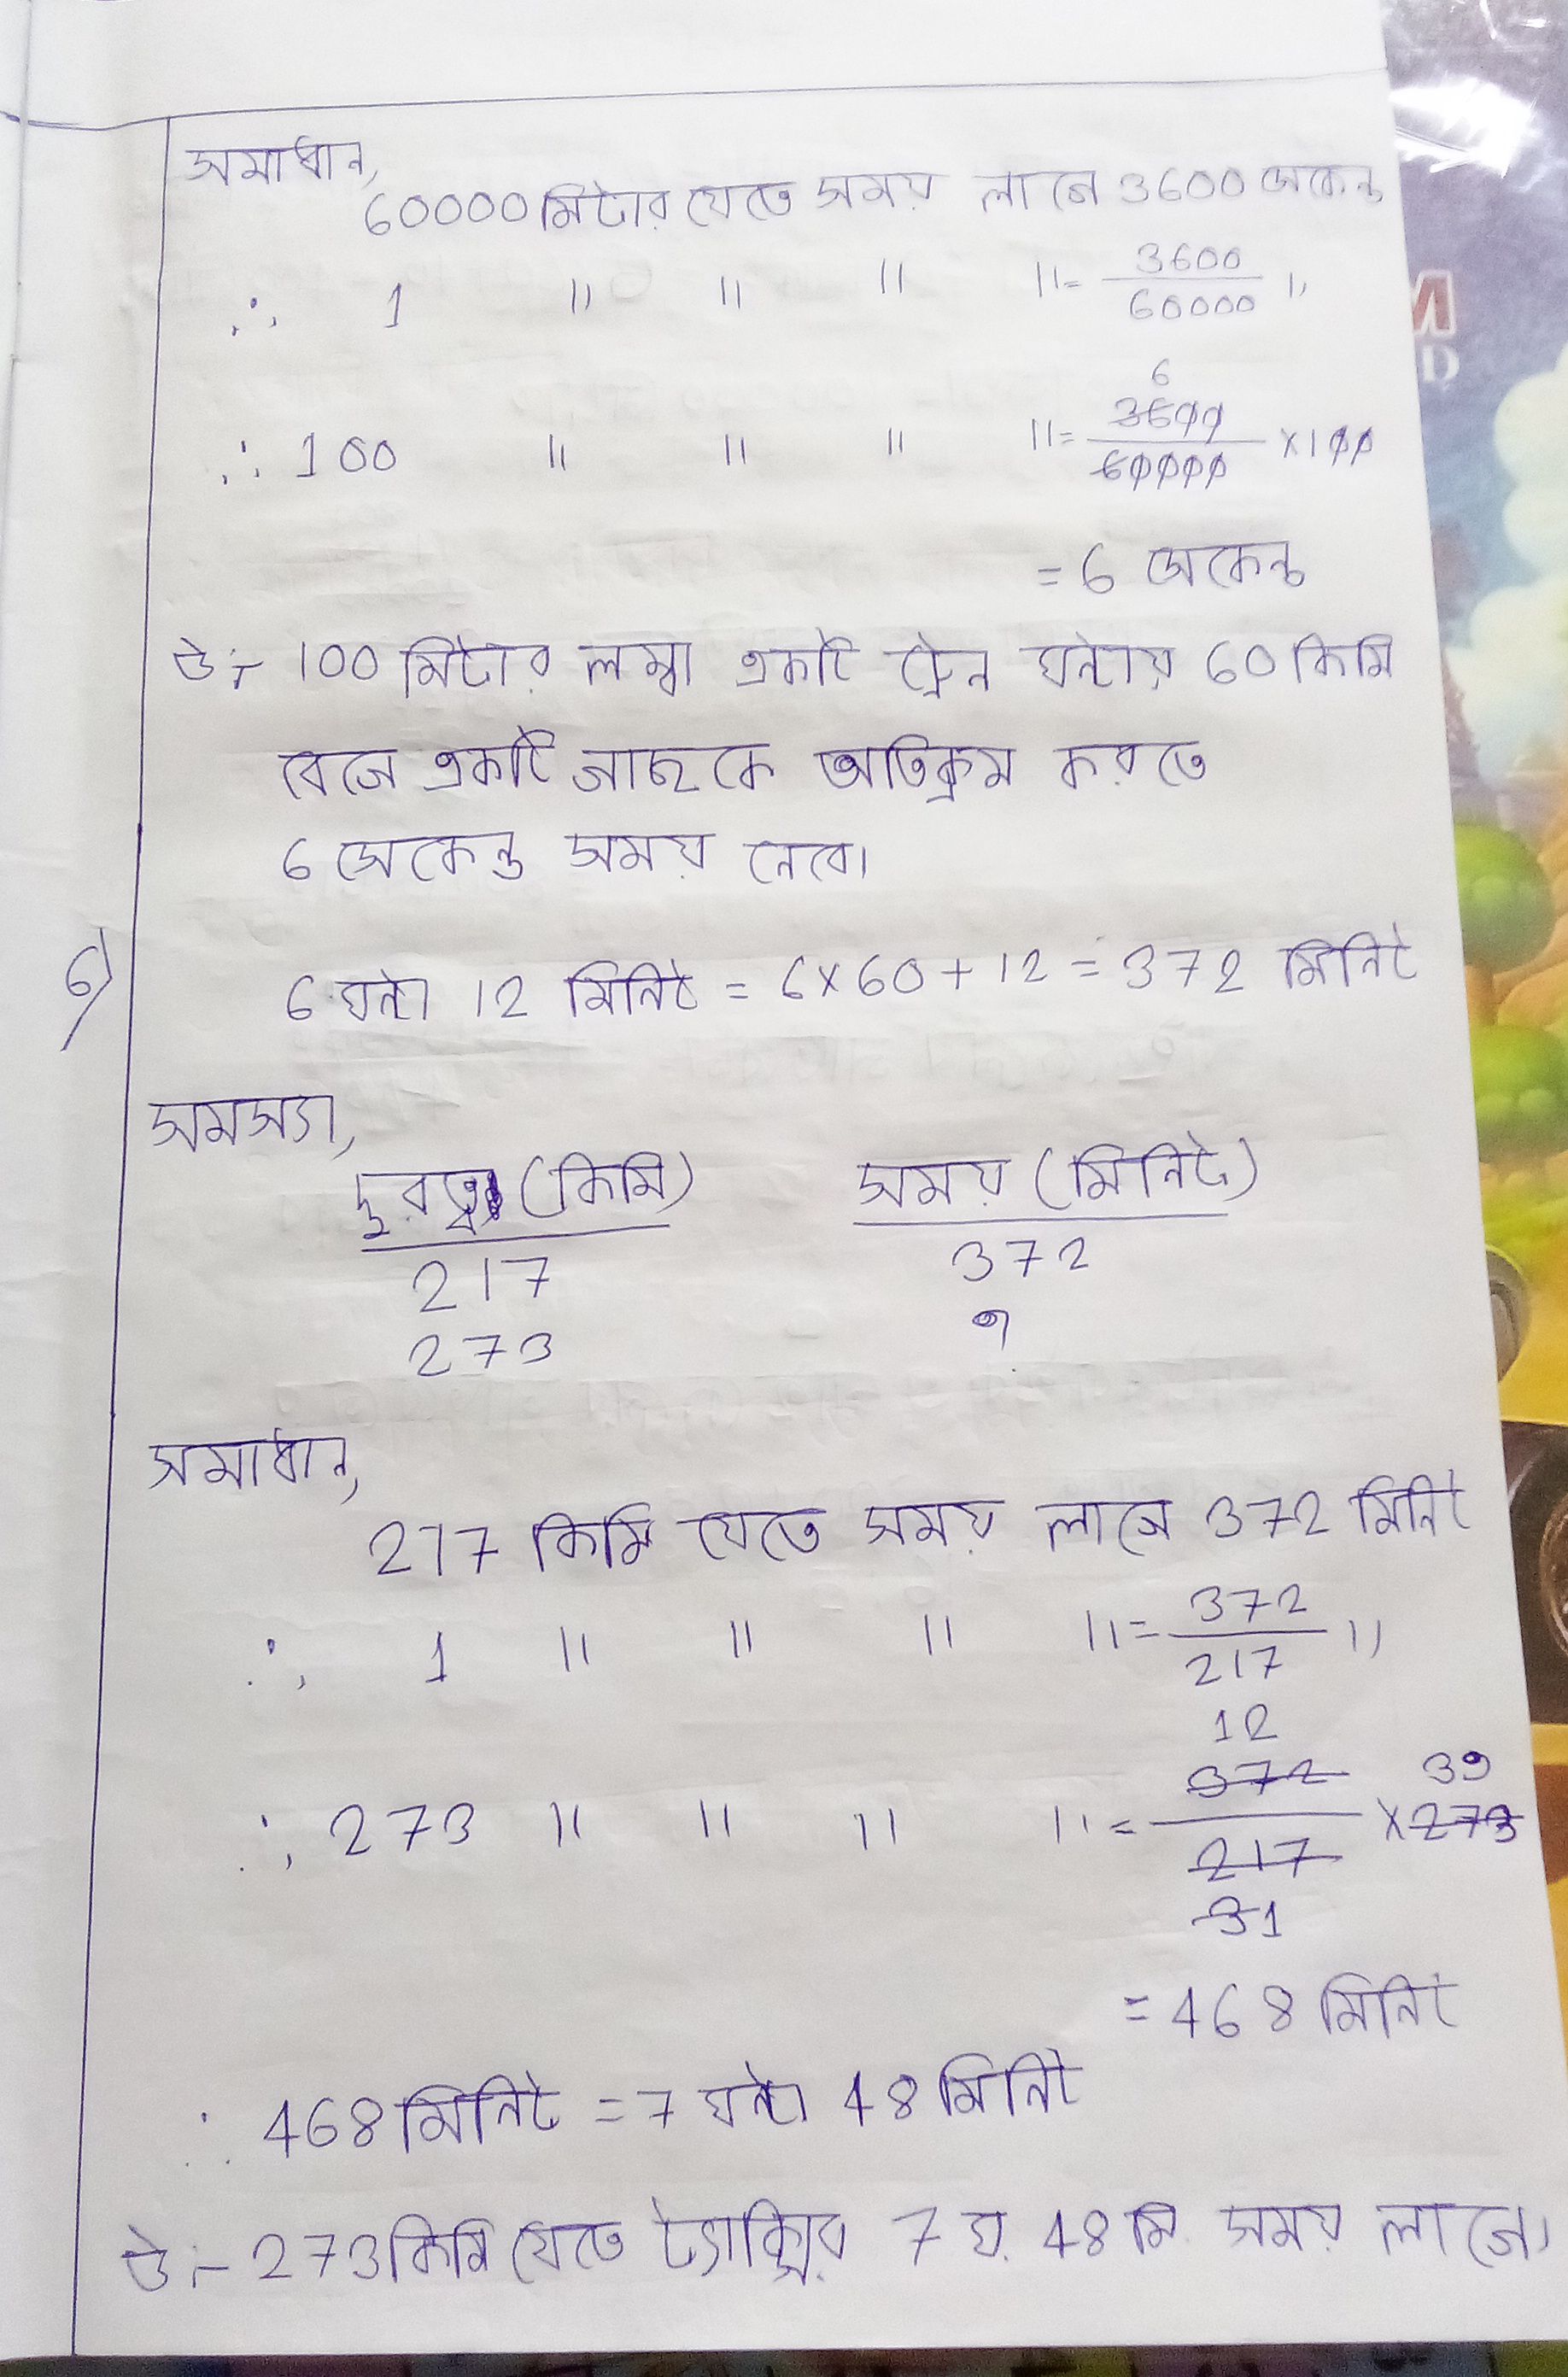 সমাধান,
60000 মিটার যেতে সময় লাগে 3600 সেকেন্ড
∴ 1 " " " " = 3600/60000 "
∴ 100 " " " " = 3600/60000 × 100
6
= 6 সেকেন্ড
উঃ- 100 মিটার লম্বা একটি ট্রেন ঘন্টায় 60 কিমি
বেগে একটি গাছকে অতিক্রম করতে
6 সেকেন্ড সময় নেবে।
6) 6 ঘন্টা 12 মিনিট = 6×60+12 = 372 মিনিট
সমস্যা,
দুরত্ব (কিমি) সময় (মিনিটে)
217 372
273 ?
সমাধান,
217 কিমি যেতে সময় লাগে 372 মিনিট
∴ 1 " " " " = 372/217 "
12 39
∴ 273 " " " " = 372/217 × 273
31
= 468 মিনিট
∴ 468 মিনিট = 7 ঘন্টা 48 মিনিট
উঃ- 273 কিমি যেতে ট্যাক্সির 7 ঘ. 48 মি. সময় লাগে।
M
D